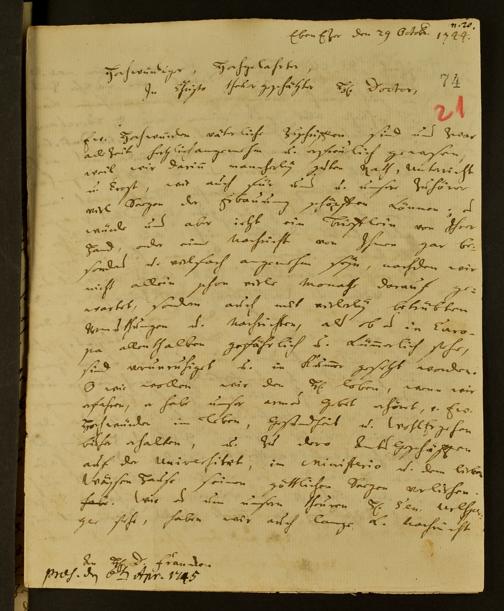 n. 20.
EbenEzer den 29 Octobr. 1744.
74
Hochwürdiger, Hochgelahrter,
In Christo theuer geschätzter H. Doctor,
21
Ew. Hochwürden väterliche Zuschriften sind uns zwar
alle Zeit herzlich angenehm u. erfreulich gewesen,
weil wir darin mancherley guten Rath, Unterricht
u. Trost, wie auch für uns u. unsere Zuhörer
viel Segen der Erbauung schöpffen können; es
würde uns aber jetzt ein Brieflein von Ihrer
Hand, oder eine Nachricht von Ihnen gar be-
sonders u. vielfach angenehm seyn, nachdem wir
nicht allein schon viele Monath darauf ge-
wartet, sondern auch mit vielerley betrübten
Vermuthungen u. Nachrichten, als ob es in Euro-
pa allenthalben gefährlich u. kümmerlich stehe,
sind verunruhiget u. in Kummer gesetzt worden.
O wie wollen wir den H. loben, wenn wir
erfahren, er habe unser armes Gebet erhört, u. Ew.
Hochwürden im Leben, Gesundheit u.
erhalten, u. zu dero Amts Geschäfften
auf der Universitaet, im Ministerio u. dem lieben
Waysenhause seinen göttlichen Segen verliehen.
Wie es um unsern theuren H. Sen. Urlsper-
ger stehe, haben wir auch lange k. Nachricht
An H. D. Francken.
præs. den Apr. 1745